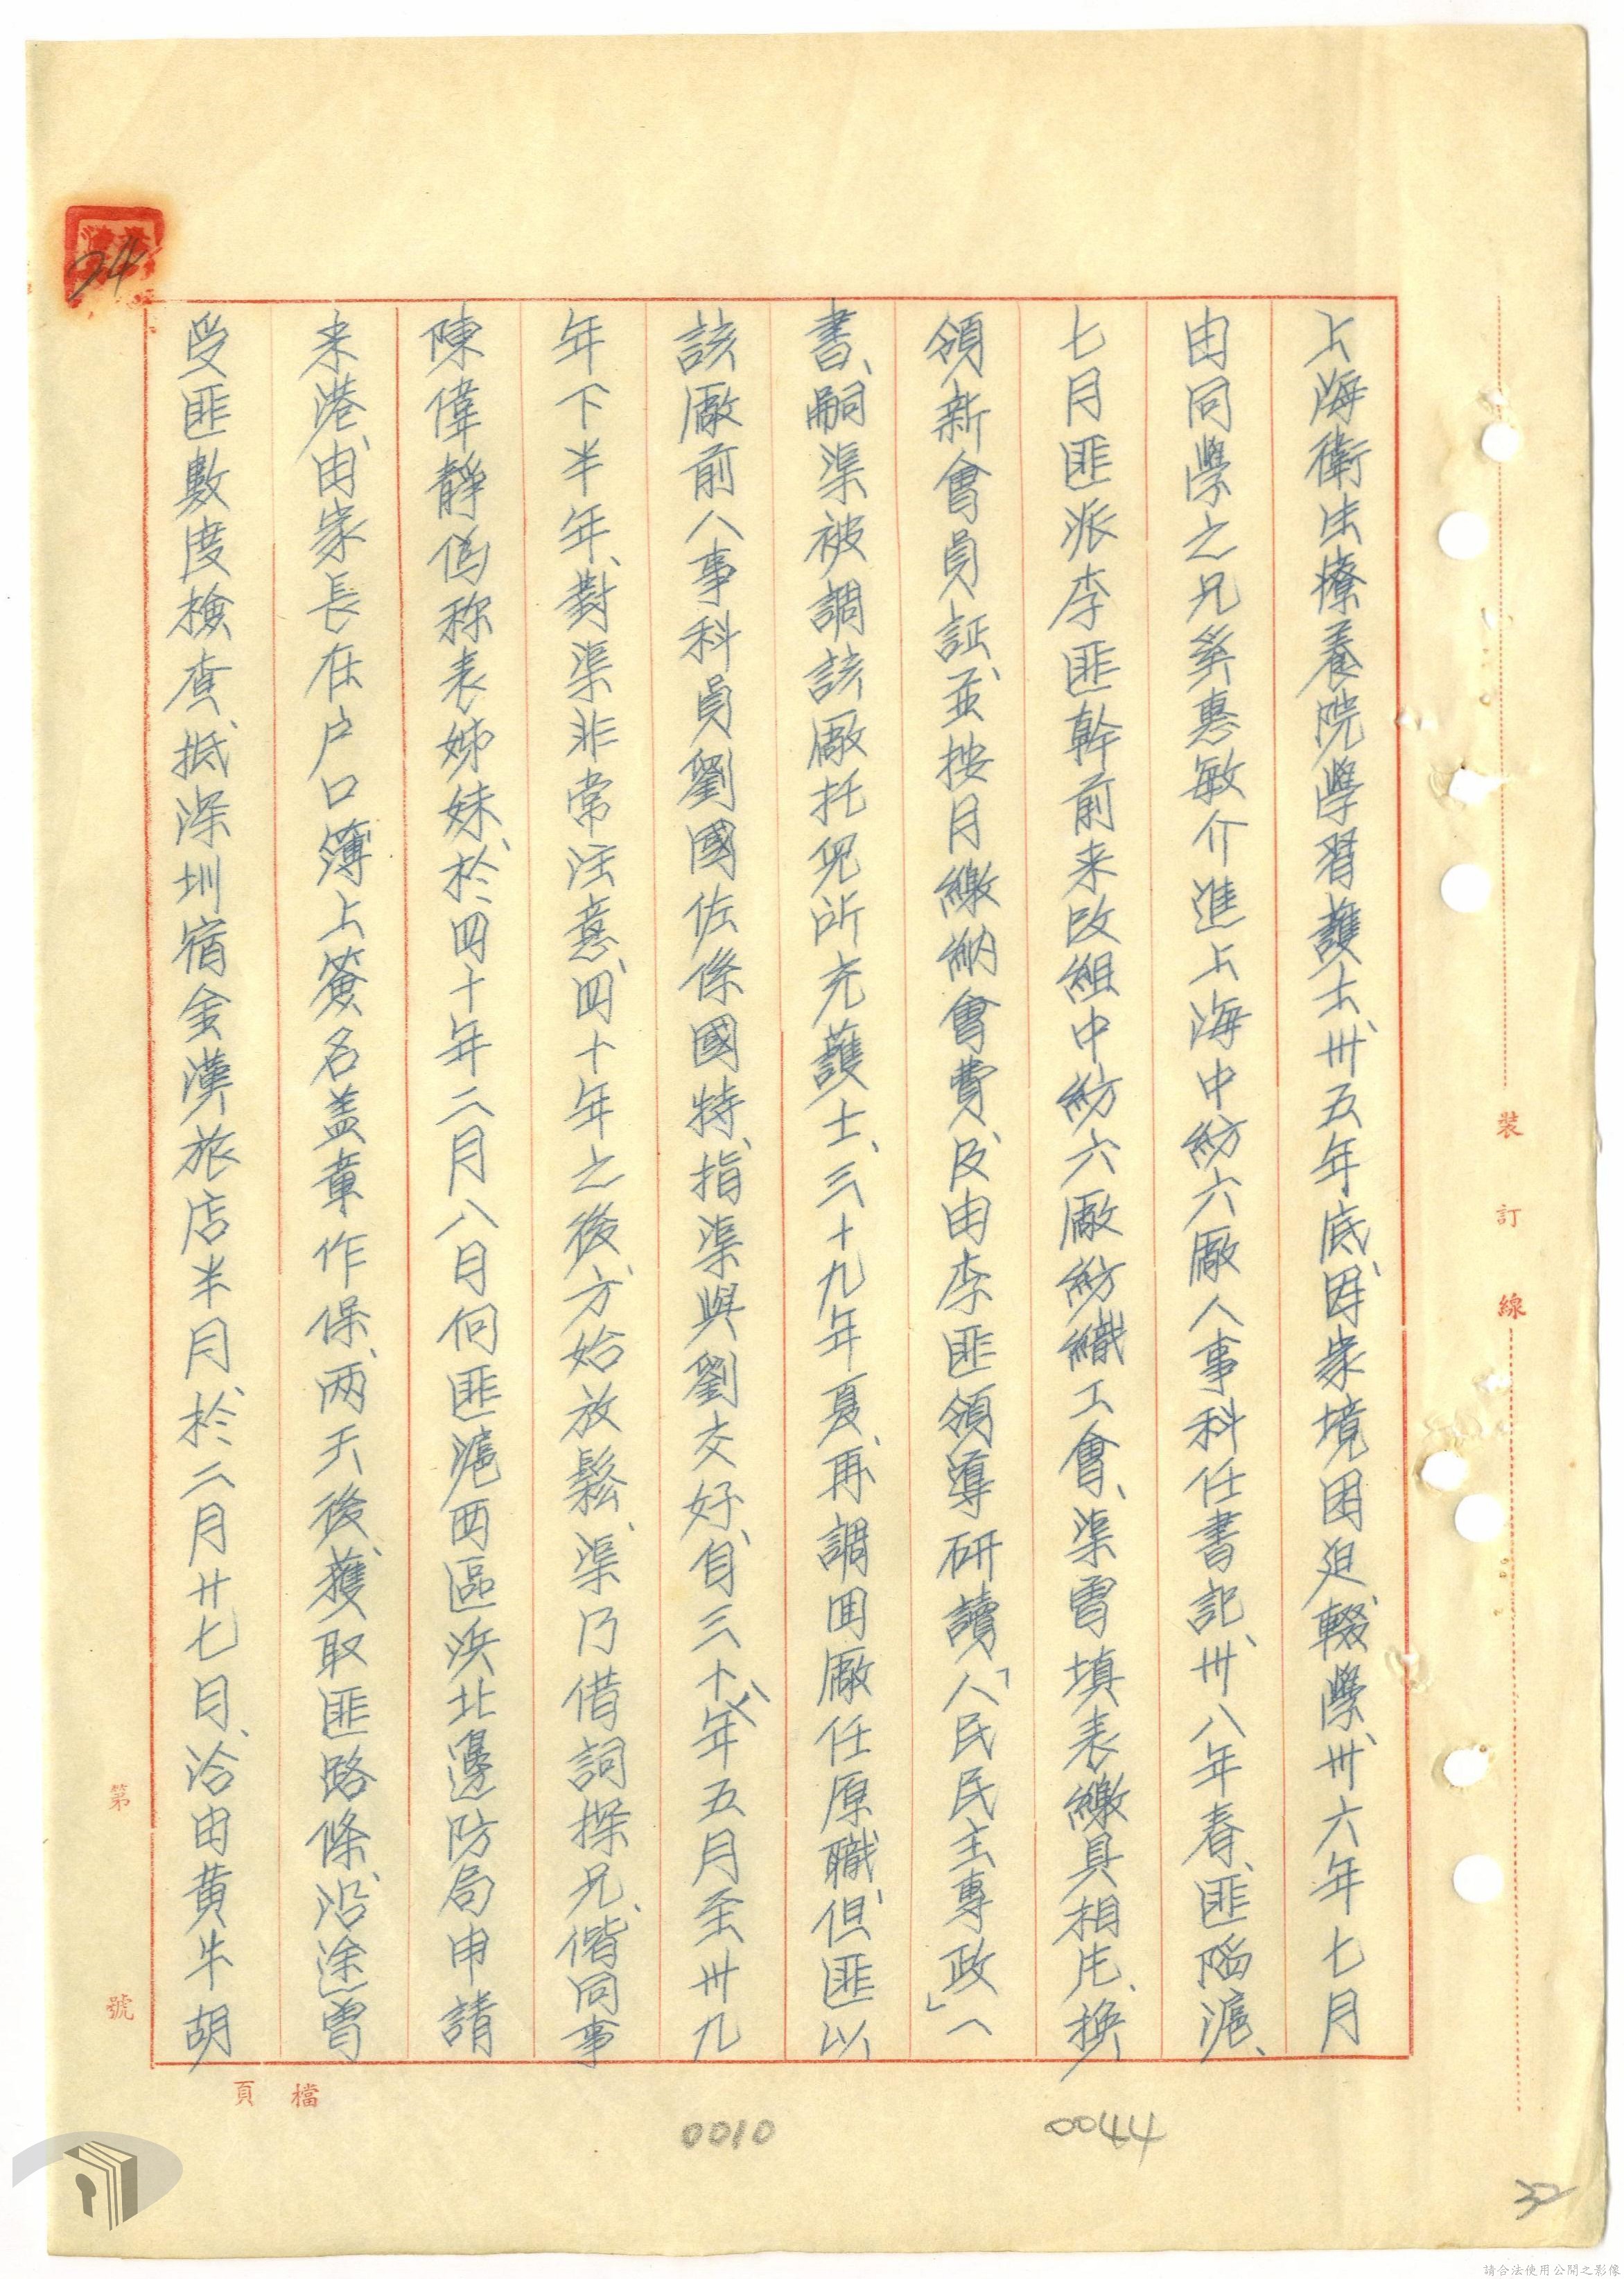 上海衛生療養院學習護士、卅五年底、因家境困迫、輟學、卅六年七月
由同學之兄奚惠敏介進上海中紡六廠人事科任書記、卅八年春、匪陷滬、
七月匪派李匪幹前来改組中紡六廠紡織工會、渠曾填表繳具相片、換
領新會員証、並按月繳納會費、及由李匪領導研讀「人民民主專政」一
書、嗣渠被調該廠托兒所充護士、三十九年夏、再調回廠任原職、但匪以
該廠前人事科員劉國佐係國特、指渠與劉交好、自三十八年五月至卅九
年下半年、對渠非常注意、四十年之後、方始放鬆、渠乃借詞探兄、偕同事
陳偉靜偽称表姊妹、於四十年二月八日向匪滬西區浜北邊防局申請
来港、由家長在户口簿上簽名盖章作保、两天後、獲取匪路條、沿途曾
受匪數度檢查、抵深圳宿金漢旅店半月、於二月廿七日、洽由黄牛胡
裝訂線
第 號
檔 頁
24
0010
0044
32
請合法使用公開之影像